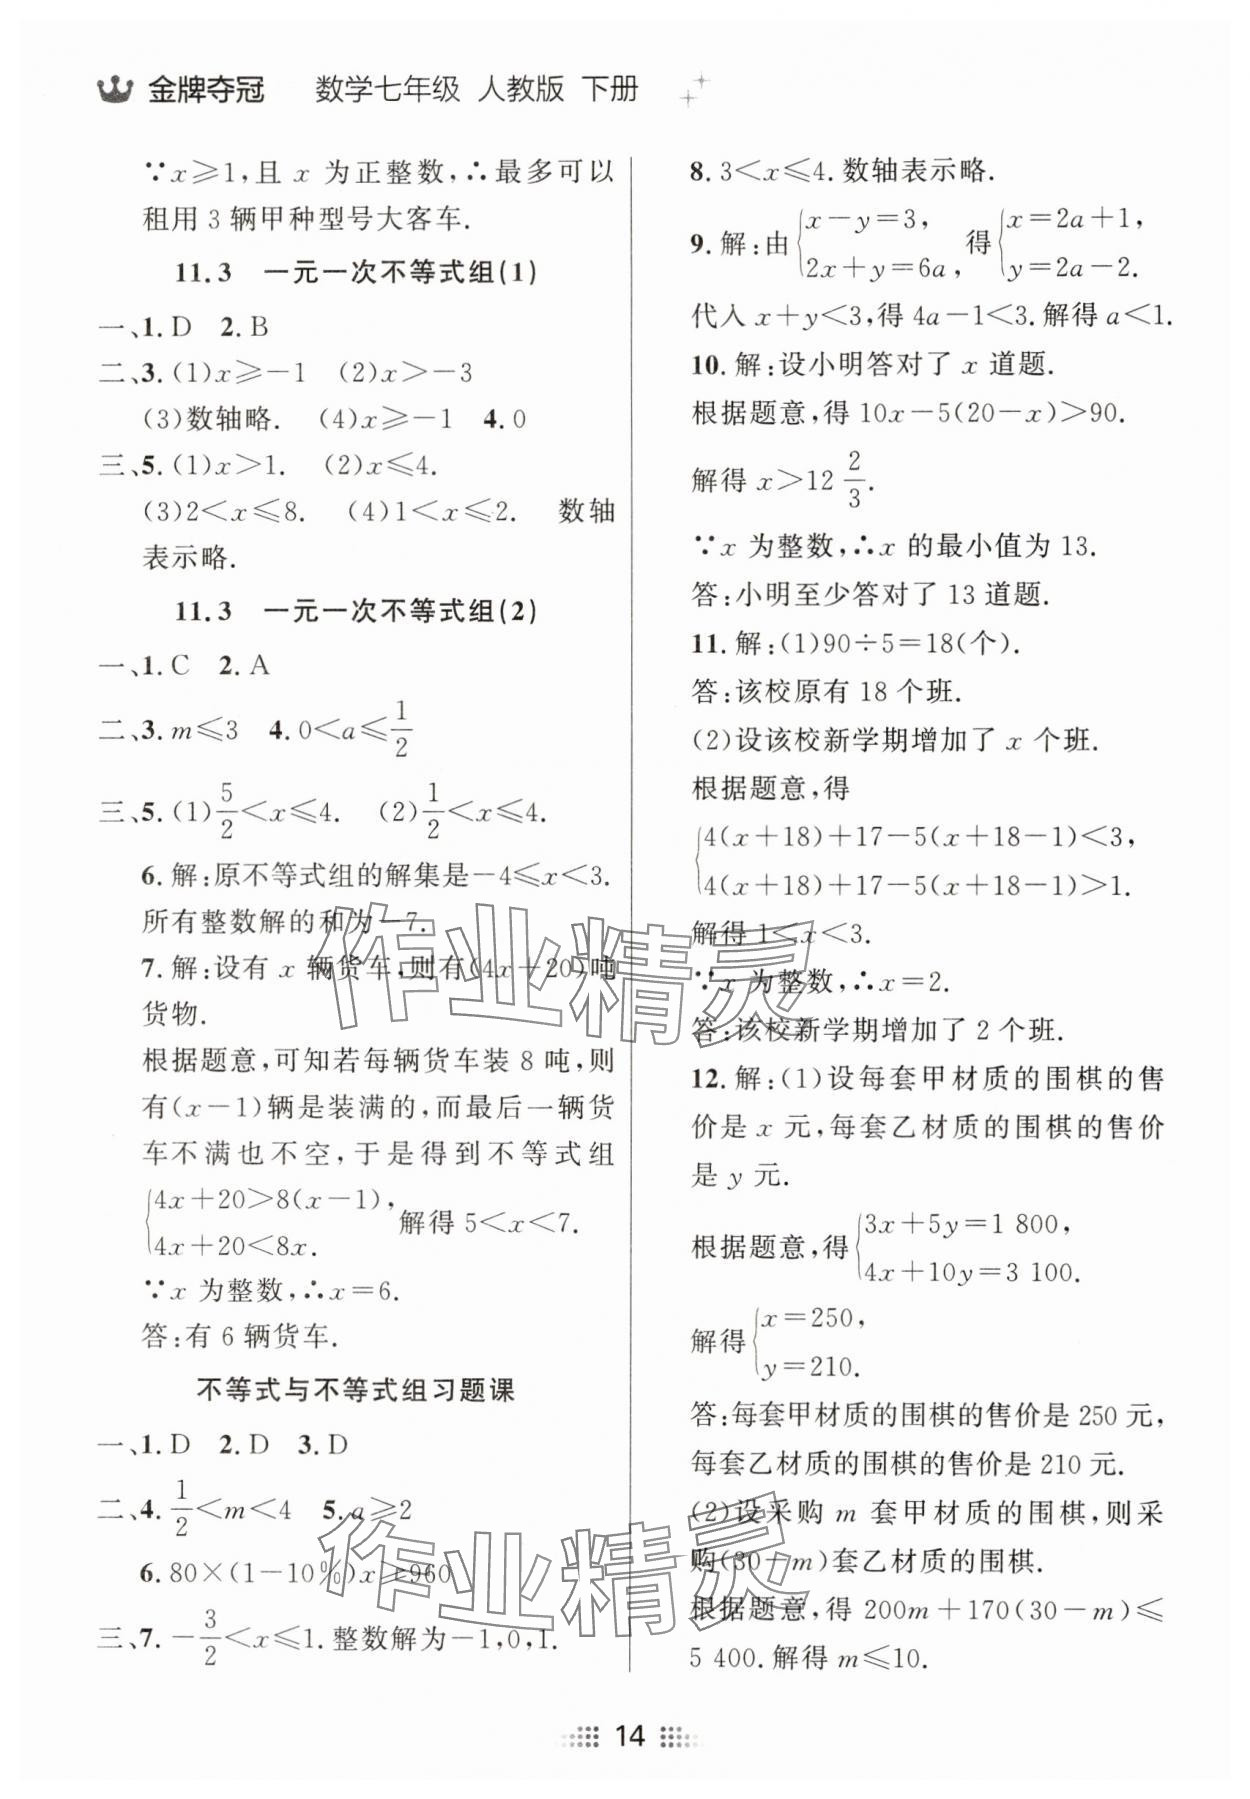 金牌夺冠 数学七年级 人教版 下册
∵x≥1,且 x 为正整数,∴最多可以
租用 3 辆甲种型号大客车.
11.3 一元一次不等式组(1)
一、1.D 2.B
二、3.(1)x≥-1 (2)x>-3
(3)数轴略. (4)x≥-1 4.0
三、5.(1)x>1. (2)x≤4.
(3)2<x≤8. (4)1<x≤2. 数轴
表示略.
11.3 一元一次不等式组(2)
一、1.C 2.A
二、3.m≤3 4.0<a≤1/2
三、5.(1)5/2<x≤4. (2)1/2<x≤4.
6.解:原不等式组的解集是-4≤x<3.
所有整数解的和为-7.
7.解:设有 x 辆货车,则有(4x+20)吨
货物.
根据题意,可知若每辆货车装 8 吨,则
有(x-1)辆是装满的,而最后一辆货
车不满也不空,于是得到不等式组
{4x+20>8(x-1),
4x+20<8x. 解得 5<x<7.
∵x 为整数,∴x=6.
答:有 6 辆货车.
不等式与不等式组习题课
一、1.D 2.D 3.D
二、4.1/2<m<4 5.a≥2
6.80×(1-10%)x≥960
三、7.-3/2<x≤1.整数解为-1,0,1.
8.3<x≤4.数轴表示略.
9.解:由{x-y=3, 2x+y=6a, 得{x=2a+1, y=2a-2.
代入 x+y<3,得 4a-1<3.解得 a<1.
10.解:设小明答对了 x 道题.
根据题意,得 10x-5(20-x)>90.
解得 x>12 2/3.
∵x 为整数,∴x 的最小值为 13.
答:小明至少答对了 13 道题.
11.解:(1)90÷5=18(个).
答:该校原有 18 个班.
(2)设该校新学期增加了 x 个班.
根据题意,得
{4(x+18)+17-5(x+18-1)<3,
4(x+18)+17-5(x+18-1)>1.
解得 1<x<3.
∵x 为整数,∴x=2.
答:该校新学期增加了 2 个班.
12.解:(1)设每套甲材质的围棋的售
价是 x 元,每套乙材质的围棋的售价
是 y 元.
根据题意,得{3x+5y=1 800, 4x+10y=3 100.
解得{x=250, y=210.
答:每套甲材质的围棋的售价是 250 元,
每套乙材质的围棋的售价是 210 元.
(2)设采购 m 套甲材质的围棋,则采
购(30-m)套乙材质的围棋.
根据题意,得 200m+170(30-m)≤
5 400.解得 m≤10.
作业精灵
作业精灵
14